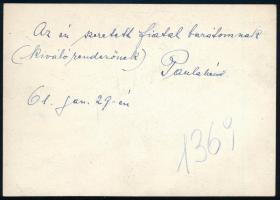 Az én szeretett fiatal barátomnak
(kiváló rendezőnek)
61. jan. 29-én
1369